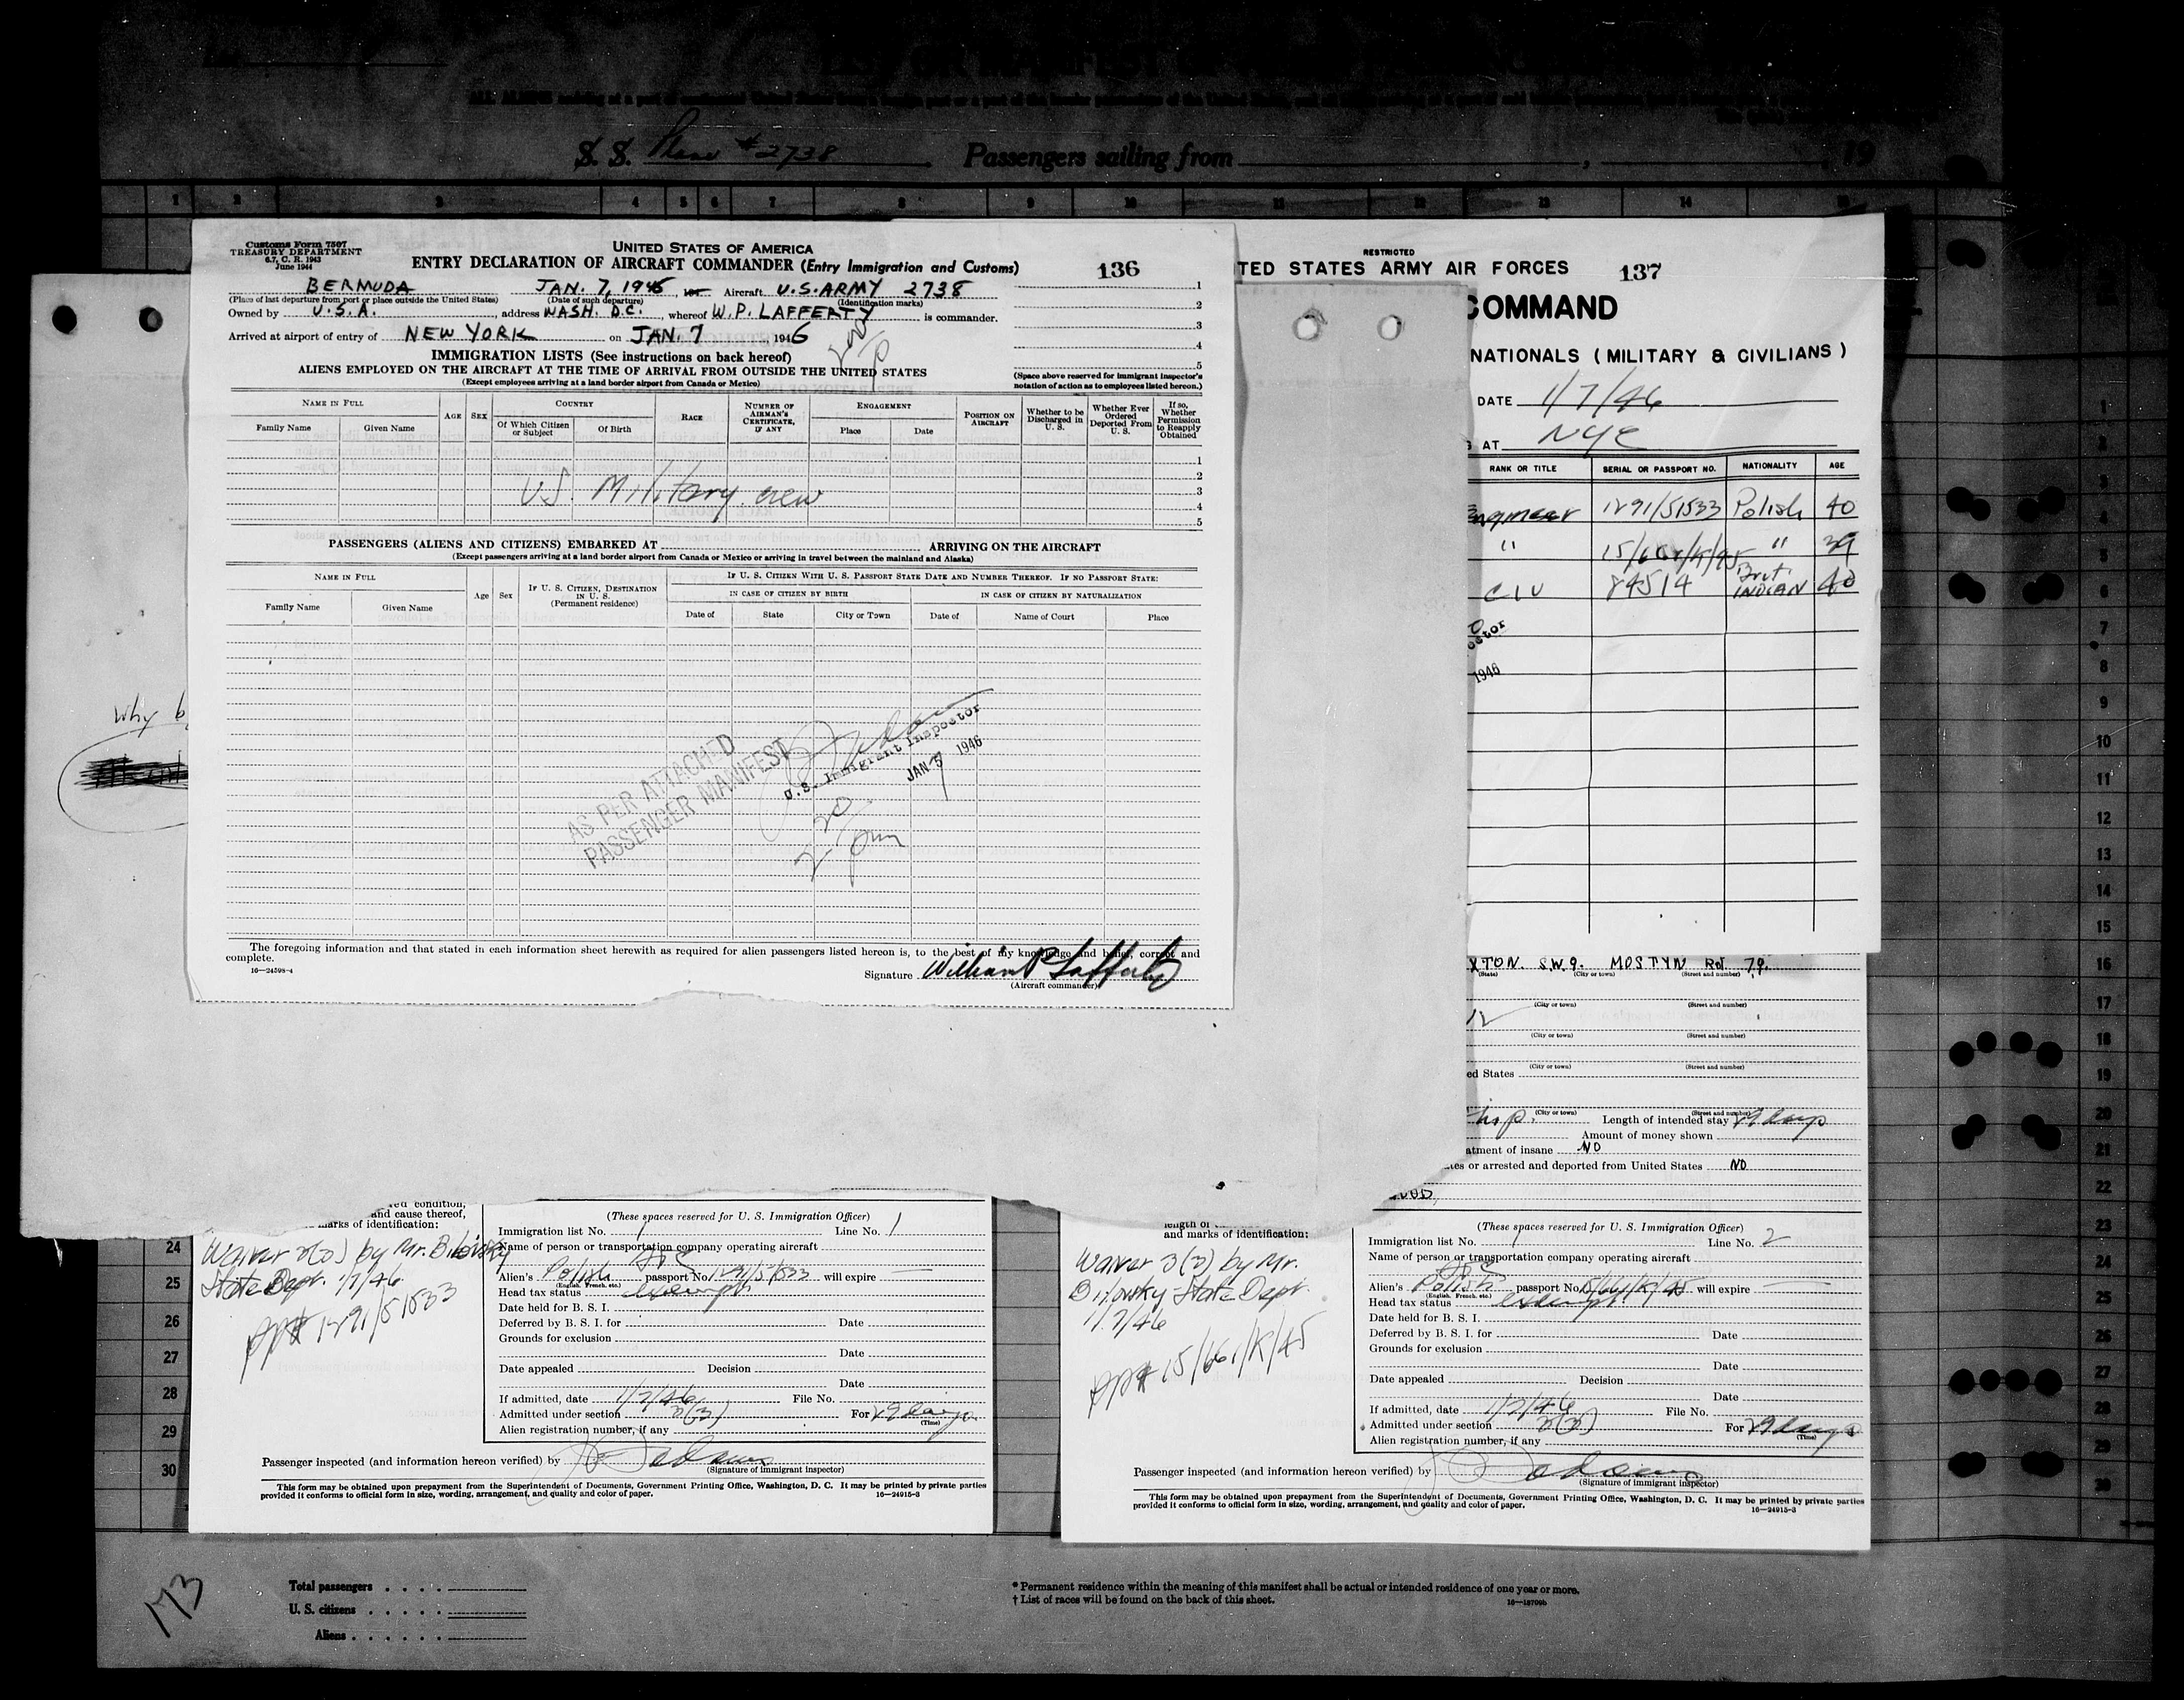 S. S. Plane # 2738 Passengers sailing from , 19
1 2 3 4 5 6 7 8 9 10 11 12 13 14 15
Customs Form 7507
TREASURY DEPARTMENT
6.7, C. R. 1943
June 1944
UNITED STATES OF AMERICA
ENTRY DECLARATION OF AIRCRAFT COMMANDER (Entry Immigration and Customs)
136
BERMUDA JAN. 7, 1946 Aircraft U.S. ARMY 2738
(Place of last departure from port or place outside the United States) (Date of such departure) (Identification marks)
Owned by U.S.A., address WASH. D.C., whereof W.P. LAFFERTY is commander.
Arrived at airport of entry of NEW YORK on JAN. 7 1946
1
2
3
4
5
(Space above reserved for immigrant inspector's
notation of action as to employees listed hereon.)
IMMIGRATION LISTS (See instructions on back hereof)
ALIENS EMPLOYED ON THE AIRCRAFT AT THE TIME OF ARRIVAL FROM OUTSIDE THE UNITED STATES
(Except employees arriving at a land border airport from Canada or Mexico)
NAME IN FULL
Family Name Given Name
AGE
SEX
COUNTRY
Of Which Citizen or Subject Of Birth
RACE
NUMBER OF AIRMAN'S CERTIFICATE, IF ANY
ENGAGEMENT
Place Date
POSITION ON AIRCRAFT
Whether to be Discharged in U. S.
Whether Ever Ordered Deported From U. S.
If so, Whether Permission to Reapply Obtained
1
2
U.S. Military crew 3
4
5
PASSENGERS (ALIENS AND CITIZENS) EMBARKED AT ARRIVING ON THE AIRCRAFT
(Except passengers arriving at a land border airport from Canada or Mexico or arriving in travel between the mainland and Alaska)
NAME IN FULL
Family Name Given Name
Age Sex
IF U. S. CITIZEN, DESTINATION IN U. S.
(Permanent residence)
IF U. S. CITIZEN WITH U. S. PASSPORT STATE DATE AND NUMBER THEREOF. IF NO PASSPORT STATE:
IN CASE OF CITIZEN BY BIRTH IN CASE OF CITIZEN BY NATURALIZATION
Date of State City or Town Date of Name of Court Place
AS PER ATTACHED
PASSENGER MANIFEST
U.S. Immigrant Inspector
JAN 7 1946
2 20 pm
The foregoing information and that stated in each information sheet herewith as required for alien passengers listed hereon is, to the best of my knowledge and belief, correct and
complete.
16—24598-4
Signature William P Lafferty
(Aircraft commander)
RESTRICTED
TED STATES ARMY AIR FORCES 137
COMMAND
NATIONALS ( MILITARY & CIVILIANS )
DATE 1/7/46
AT NYC
RANK OR TITLE SERIAL OR PASSPORT NO. NATIONALITY AGE
Engineer 1291/51533 Polish 40
" 15/661/K/45 " 39
CIV 84514 Brit. INDIAN 40
1946
why b
XTON. S.W.9. MOSTYN Rd. 79.
(State) (City or town) (Street and number)
(City or town) (Street and number)
(City or town) (Street and number)
(City or town) (Street and number)
ed States
(City or town) (Street and number)
Length of intended stay 29 days
Amount of money shown
atment of insane NO
tes or arrested and deported from United States NO
ved condition,
and cause thereof,
marks of identification:
Waiver 3(3) by Mr. Bilovsky
State Dept. 1/7/46
pp# 1291/51533
(These spaces reserved for U. S. Immigration Officer)
Immigration list No. 1 Line No. 1
Name of person or transportation company operating aircraft
Alien's Polish passport No. 1291/51533 will expire
(English, French, etc.)
Head tax status exempt
Date held for B. S. I.
Deferred by B. S. I. for Date
Grounds for exclusion
Date
Date appealed Decision
Date
If admitted, date 1/7/46 File No.
Admitted under section 3(3) For 29 days
(Time)
Alien registration number, if any
Passenger inspected (and information hereon verified) by
(Signature of immigrant inspector)
This form may be obtained upon prepayment from the Superintendent of Documents, Government Printing Office, Washington, D. C. It may be printed by private parties
provided it conforms to official form in size, wording, arrangement, and quality and color of paper. 16—24915-3
length of
and marks of identification:
Waiver 3(3) by Mr.
Bilovsky State Dept.
1/7/46
pp# 15/661/K/45
(These spaces reserved for U. S. Immigration Officer)
Immigration list No. 1 Line No. 2
Name of person or transportation company operating aircraft
Alien's Polish passport No. 15/661/K/45 will expire
(English, French, etc.)
Head tax status exempt
Date held for B. S. I.
Deferred by B. S. I. for Date
Grounds for exclusion
Date
Date appealed Decision
Date
If admitted, date 1/7/46 File No.
Admitted under section 3(3) For 29 days
(Time)
Alien registration number, if any
Passenger inspected (and information hereon verified) by
(Signature of immigrant inspector)
This form may be obtained upon prepayment from the Superintendent of Documents, Government Printing Office, Washington, D. C. It may be printed by private parties
provided it conforms to official form in size, wording, arrangement, and quality and color of paper. 16—24915-3
24
25
26
27
28
29
30
1
2
3
4
5
6
7
8
9
10
11
12
13
14
15
16
17
18
19
20
21
22
23
24
25
26
27
28
29
30
173
Total passengers
U. S. citizens
Aliens
* Permanent residence within the meaning of this manifest shall be actual or intended residence of one year or more.
† List of races will be found on the back of this sheet.